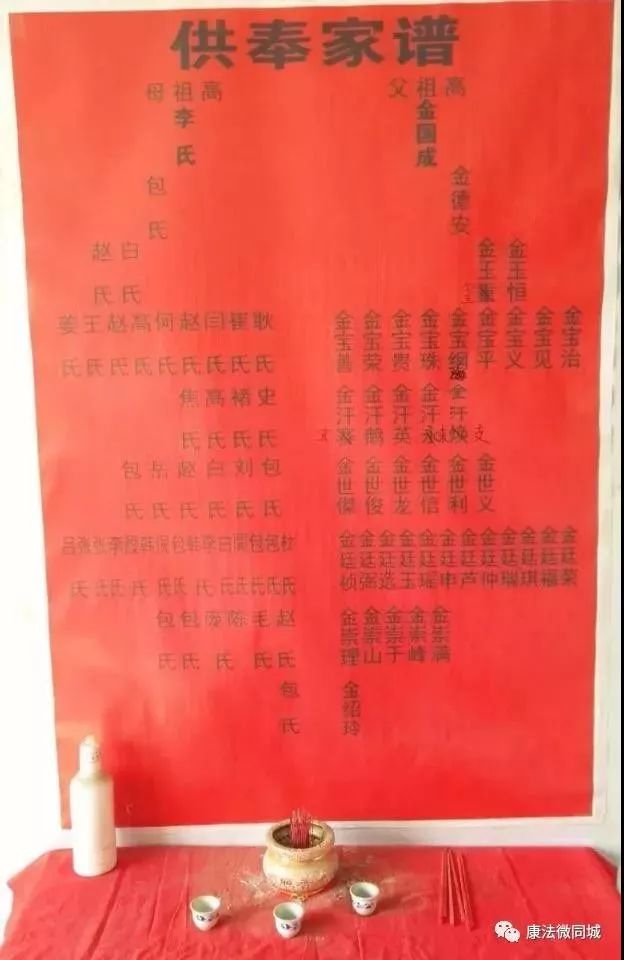 供奉家谱
高祖父
金国成
高祖母
李氏
金德安
包氏
金玉恒
金玉玺
白氏
赵氏
金宝治
金宝见
金宝义
金宝平
金宝纲
金宝珠
金宝贵
金宝荣
金宝善
耿氏
崔氏
闫氏
赵氏
何氏
高氏
赵氏
王氏
姜氏
金汗焕
金汗永
金汗英
金汗鹅
金汗
史氏
褚氏
高氏
焦氏
金世义
金世利
金世信
金世龙
金世俊
金世傑
包氏
刘氏
白氏
赵氏
岳氏
包氏
金廷荣
金廷福
金廷琪
金廷瑞
金廷仲
金廷芦
金廷申
金廷瑶
金廷玉
金廷选
金廷强
金廷桢
杜氏
包氏
包氏
白氏
李氏
韩氏
包氏
韩氏
李氏
张氏
张氏
吕氏
金崇满
金崇峰
金崇于
金崇山
金崇理
赵氏
毛氏
陈氏
庞氏
包氏
包氏
金绍玲
包氏
康法微同城